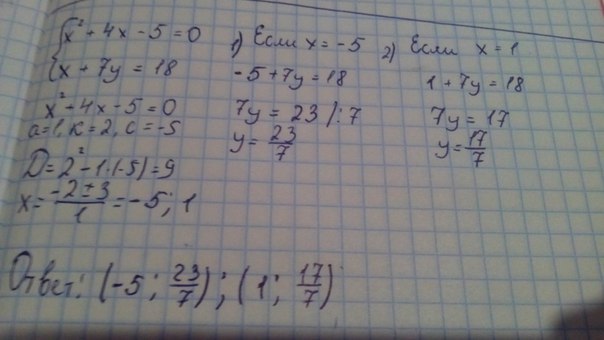 {x² + 4x - 5 = 0
{x + 7y = 18
x² + 4x - 5 = 0
a = 1, k = 2, c = -5
D = 2² - 1·(-5) = 9
x = (-2 ± 3)/1 = -5; 1
1) Если x = -5
-5 + 7y = 18
7y = 23 /: 7
y = 23/7
2) Если x = 1
1 + 7y = 18
7y = 17
y = 17/7
Ответ: (-5; 23/7); (1; 17/7)